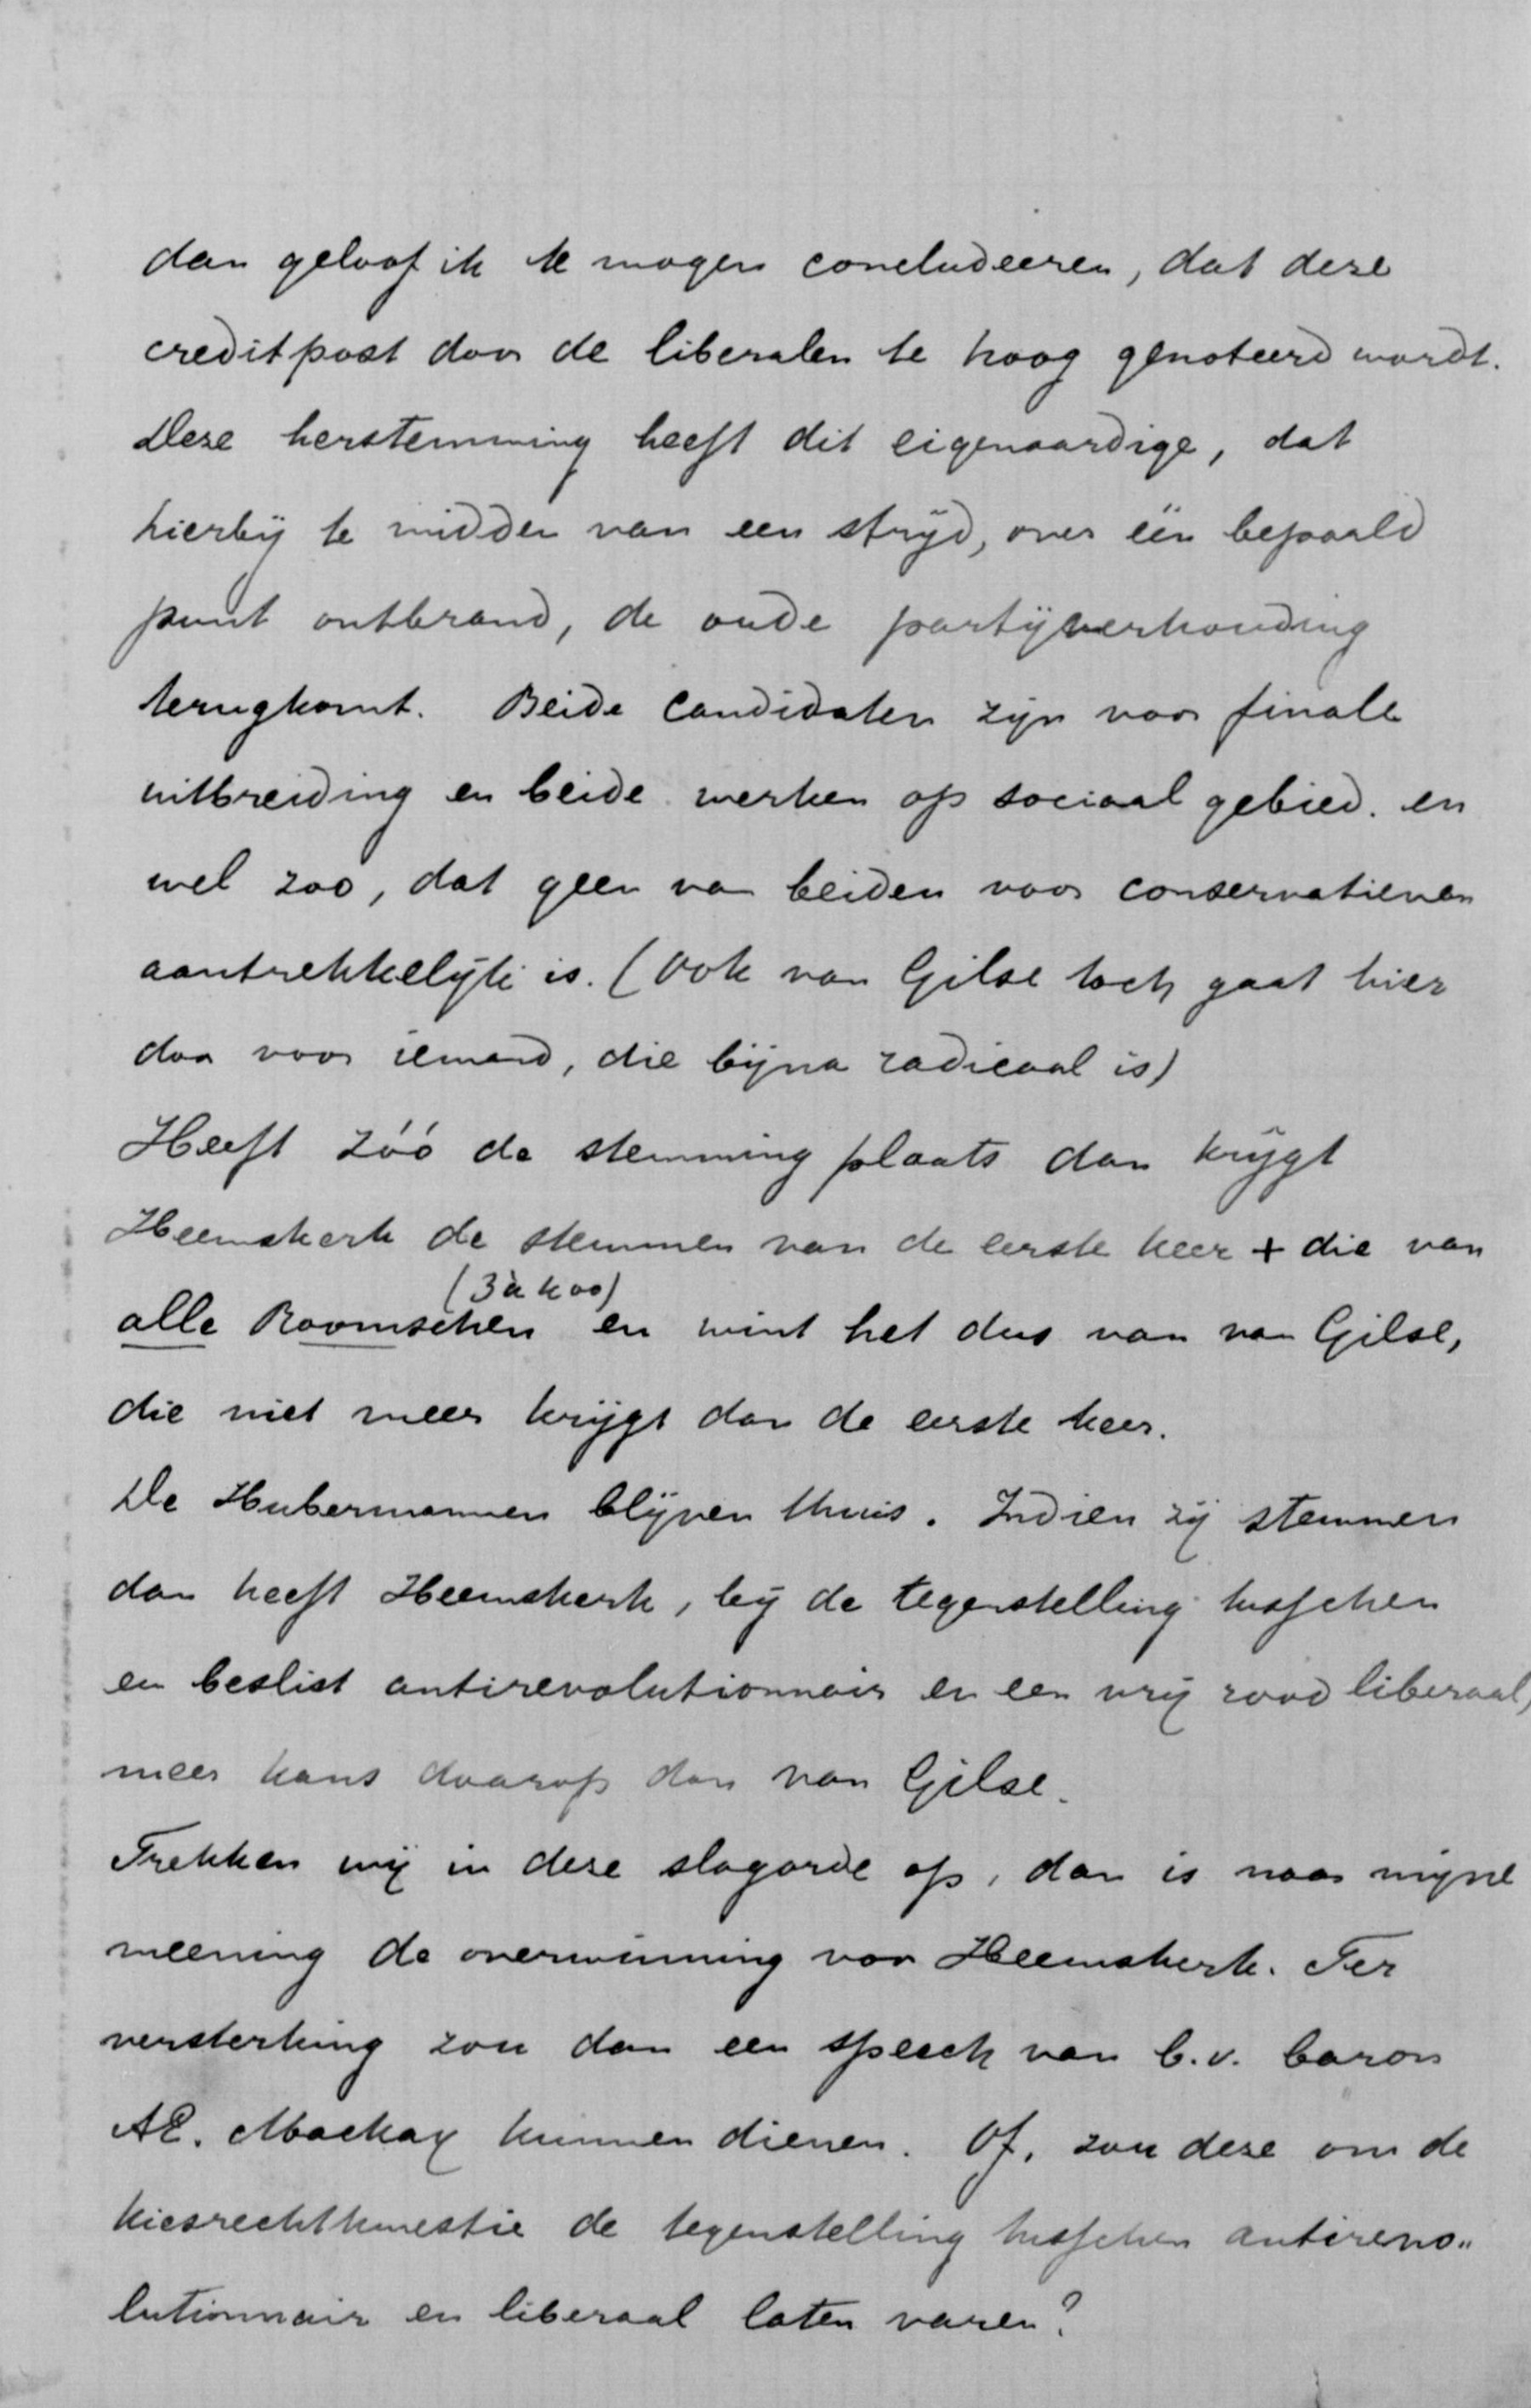 dan geloof ik te mogen concludeeren, dat deze
creditpost door de liberalen te hoog genoteerd wordt.
Deze herstemming heeft dit eigenaardige, dat
hierbij te midden van een strijd, over één bepaald
punt ontbrand, de oude partijverhouding
terugkomt. Beide candidaten zijn voor finale
uitbreiding en beide werken op sociaal gebied. en
wel zoo, dat geen van beiden voor conservatieven
aantrekkelijk is. (Ook van Gilse toch gaat hier
door voor iemand, die bijna radicaal is)
Heeft zóó de stemming plaats dan krijgt
Heemskerk de stemmen van de eerste keer + die van
(3 à 400)
alle Roomschen en wint het dus van van Gilse,
die niet meer krijgt dan de eerste keer.
De Hubermannen blijven thuis. Indien zij stemmen
dan heeft Heemskerk, bij de tegenstelling tusschen
een beslist antirevolutionnair en een vrij rood liberaal,
meer kans daarop dan van Gilse.
Trekken wij in deze slagorde op, dan is naar mijne
meening de overwinning voor Heemskerk. Ter
versterking zou dan een speech van b.v. baron
AE. Mackay kunnen dienen. Of, zou deze om de
kiesrechtkwestie de tegenstelling tusschen antirevo„
lutionnair en liberaal laten varen?